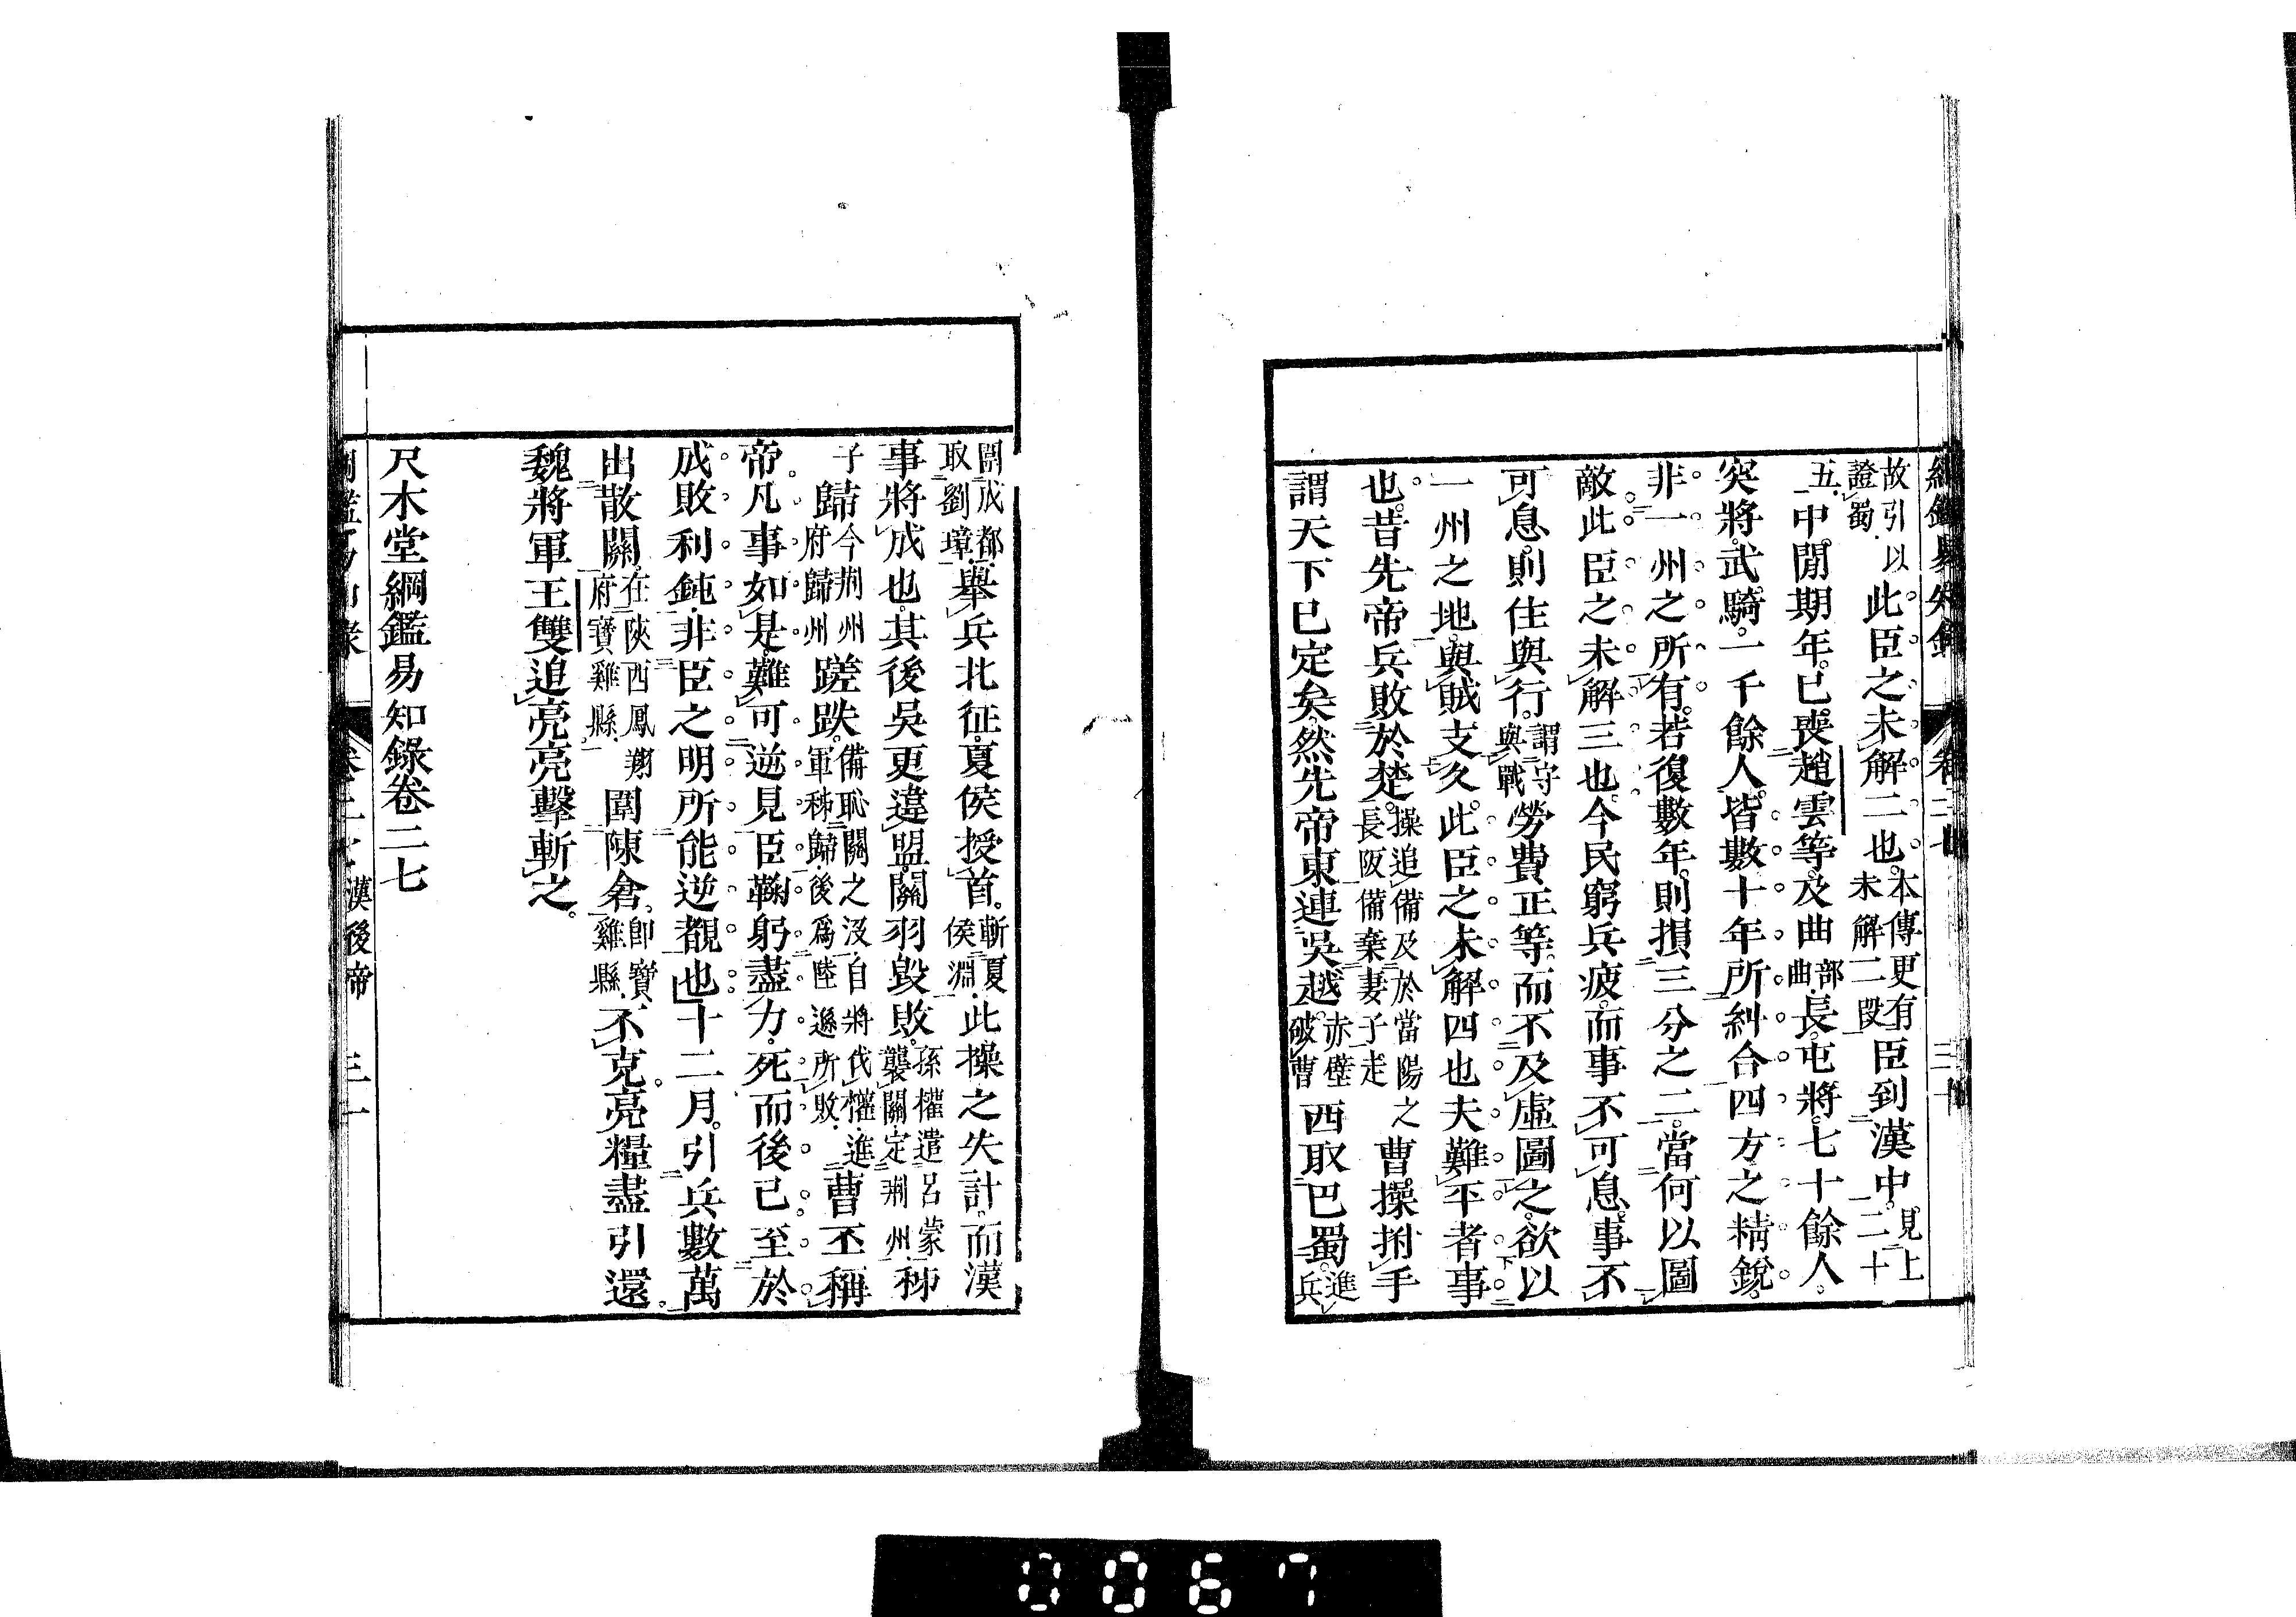 綱鑑易知錄 卷二七 三十
故引以證蜀此臣之未解二也。本傳更有未解二段臣到漢中。見上二十
五中。閒期年。已喪趙雲等。及曲部曲長。屯將。七十餘人。
突將。武騎。一千餘人。皆數十年所糾合四方之精銳。
非一州之所有。若復數年。則損三分之二。當何以圖
敵。此臣之未解三也。今民窮兵疲。而事不可息。事不
可息。則住與行。謂守與戰勞費正等。而不及虛圖之。欲以
一州之地。與賊支久。此臣之未解四也夫難平者事
也。昔先帝兵敗於楚。操追備及於當陽之長阪備棄妻子走曹操拊手
謂天下已定矣。然先帝東連吳越。赤壁破曹西取巴蜀。進兵
圍成都取劉璋舉兵北征。夏侯授首。斬夏侯淵此操之失計。而漢
事將成也。其後吳更違盟。關羽毀敗。孫權遣呂蒙襲關定荆州秭
子歸今荆州府歸州蹉跌。備恥關之沒自將伐權進軍秭歸後爲陸遜所敗曹丕稱
帝。凡事如是。難可逆見。臣鞠躬盡力。死而後已。至於
成敗利鈍。非臣之明所能逆覩也。十二月。引兵數萬
出散關。在陝西鳳翔府寶雞縣圍陳倉。即寶雞縣不克。亮糧盡引還。
魏將軍王雙追亮。亮擊斬之。
尺木堂綱鑑易知錄卷二七
漢後帝 三一